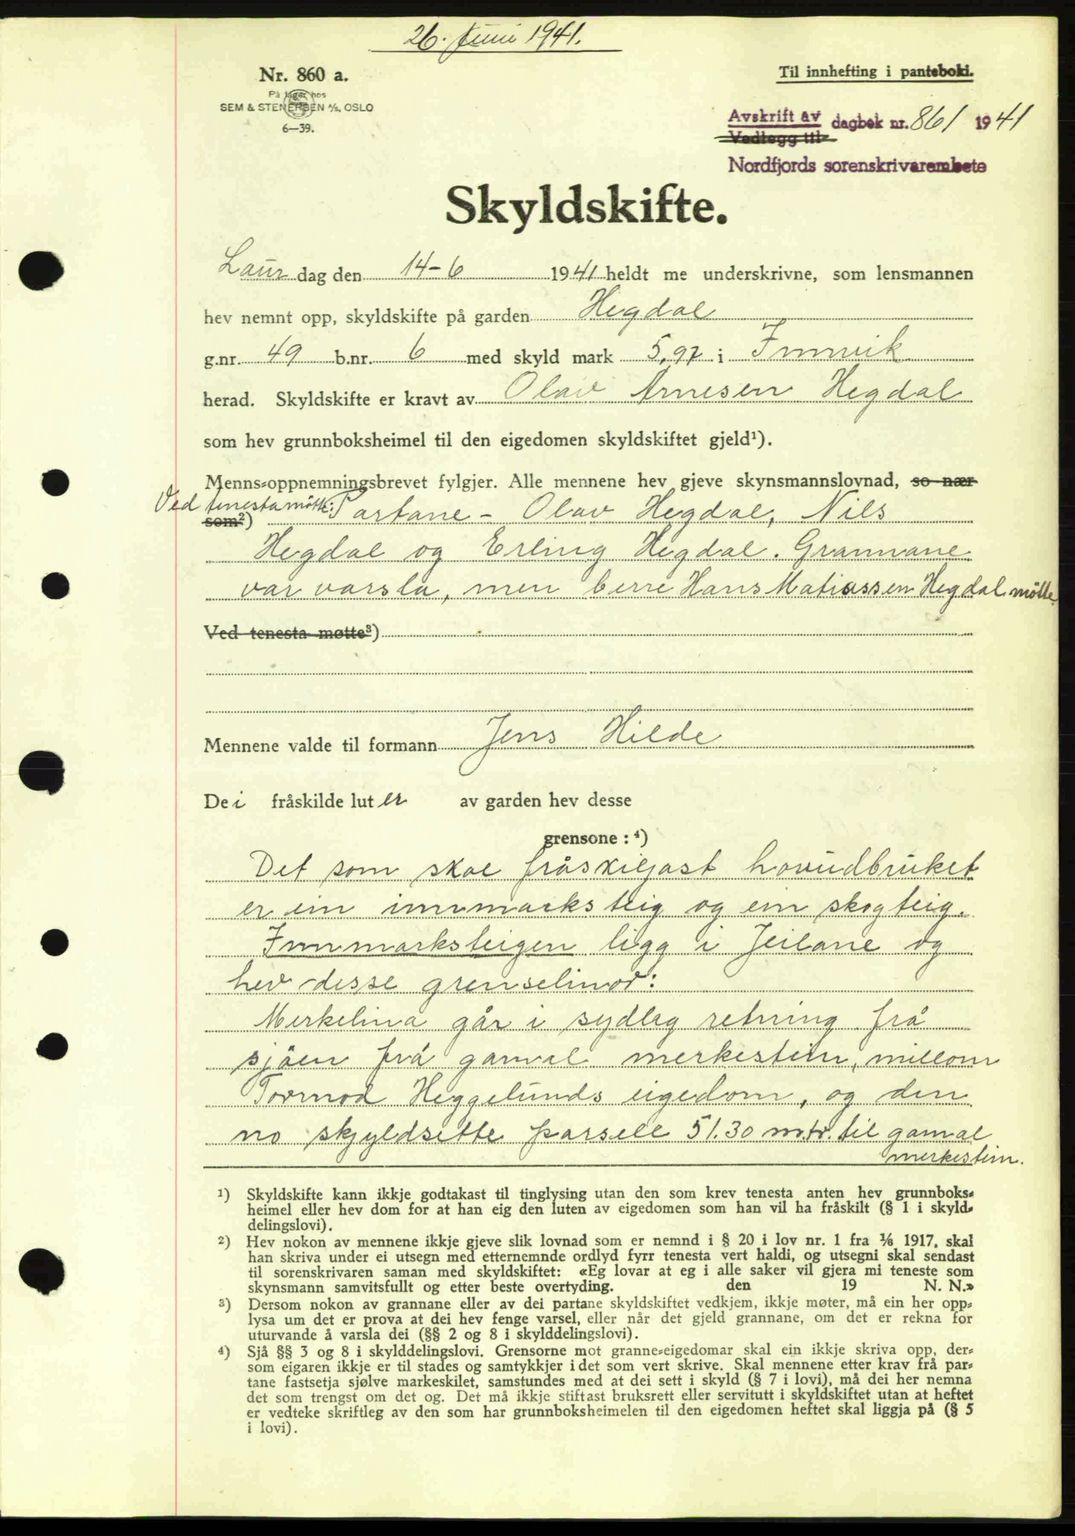 26. Juni 1941.
Nr. 860 a.
På lager hos
SEM & STENERSEN A/S, OSLO
6—39.
Til innhefting i panteboki.
Avskrift av dagbok nr. 861 1941
Vedlegg til
Nordfjords sorenskrivarembete
Skyldskifte.
Laur dag den 14-6 1941 heldt me underskrivne, som lensmannen
hev nemnt opp, skyldskifte på garden Hegdal
g.nr. 49 b.nr. 6 med skyld mark 5,97 i Innvik
herad. Skyldskifte er kravt av Olav Arnesen Hegdal
som hev grunnboksheimel til den eigedomen skyldskiftet gjeld¹).
Menns-oppnemningsbrevet fylgjer. Alle mennene hev gjeve skynsmannslovnad, so nær
som²) Ved tenesta møtte: Partane - Olav Hegdal, Nils
Hegdal og Erling Hegdal. Grannane
var varsla, men berre Hans Matiassen Hegdal møtte.
Ved tenesta møtte³)
Mennene valde til formann Jens Hilde
Dei fråskilde luter av garden hev desse
grensone : ⁴)
Det som skal fråskiljast hovudbruket
er ein innmarksteig og ein skogteig.
Innmarksteigen ligg i Jeilane og
hev desse grenselinor:
Merkelina går i sydleg retning frå
sjöen frå gamal merkestein, millom
Tormod Heggelunds eigedom, og den
no skyldsette parsell 51.30 mtr. til gamal
merkestein.
¹) Skyldskifte kann ikkje godtakast til tinglysing utan den som krev tenesta anten hev grunnboks-
heimel eller hev dom for at han eig den luten av eigedomen som han vil ha fråskilt (§ 1 i skyld-
delingslovi).
²) Hev nokon av mennene ikkje gjeve slik lovnad som er nemnd i § 20 i lov nr. 1 fra ⅟₆ 1917, skal
han skriva under ei utsegn med etternemnde ordlyd fyrr tenesta vert haldi, og utsegni skal sendast
til sorenskrivaren saman med skyldskiftet: «Eg lovar at eg i alle saker vil gjera mi teneste som
skynsmann samvitsfullt og etter beste overtyding. den 19 N. N.»
³) Dersom nokon av grannane eller av dei partane skyldskiftet vedkjem, ikkje møter, må ein her opp-
lysa um det er prova at dei hev fenge varsel, eller når det gjeld grannane, om det er rekna for
uturvande å varsla dei (§§ 2 og 8 i skylddelingslovi).
⁴) Sjå §§ 3 og 8 i skylddelingslovi. Grensorne mot granne-eigedomar skal ein ikkje skriva opp, der-
som eigaren ikkje er til stades og samtykkjer i det som vert skrive. Skal mennene etter krav frå par-
tane fastsetja sjølve markeskilet, samstundes med at dei sett i skyld (§ 7 i lovi), må dei her nemna
det som trengst om det og. Det må ikkje stiftast bruksrett eller servitutt i skyldskiftet utan at heftet
er vedteke skriftleg av den som har grunnboksheimelen til den eigedomen heftet skal liggja på (§ 5
i lovi).